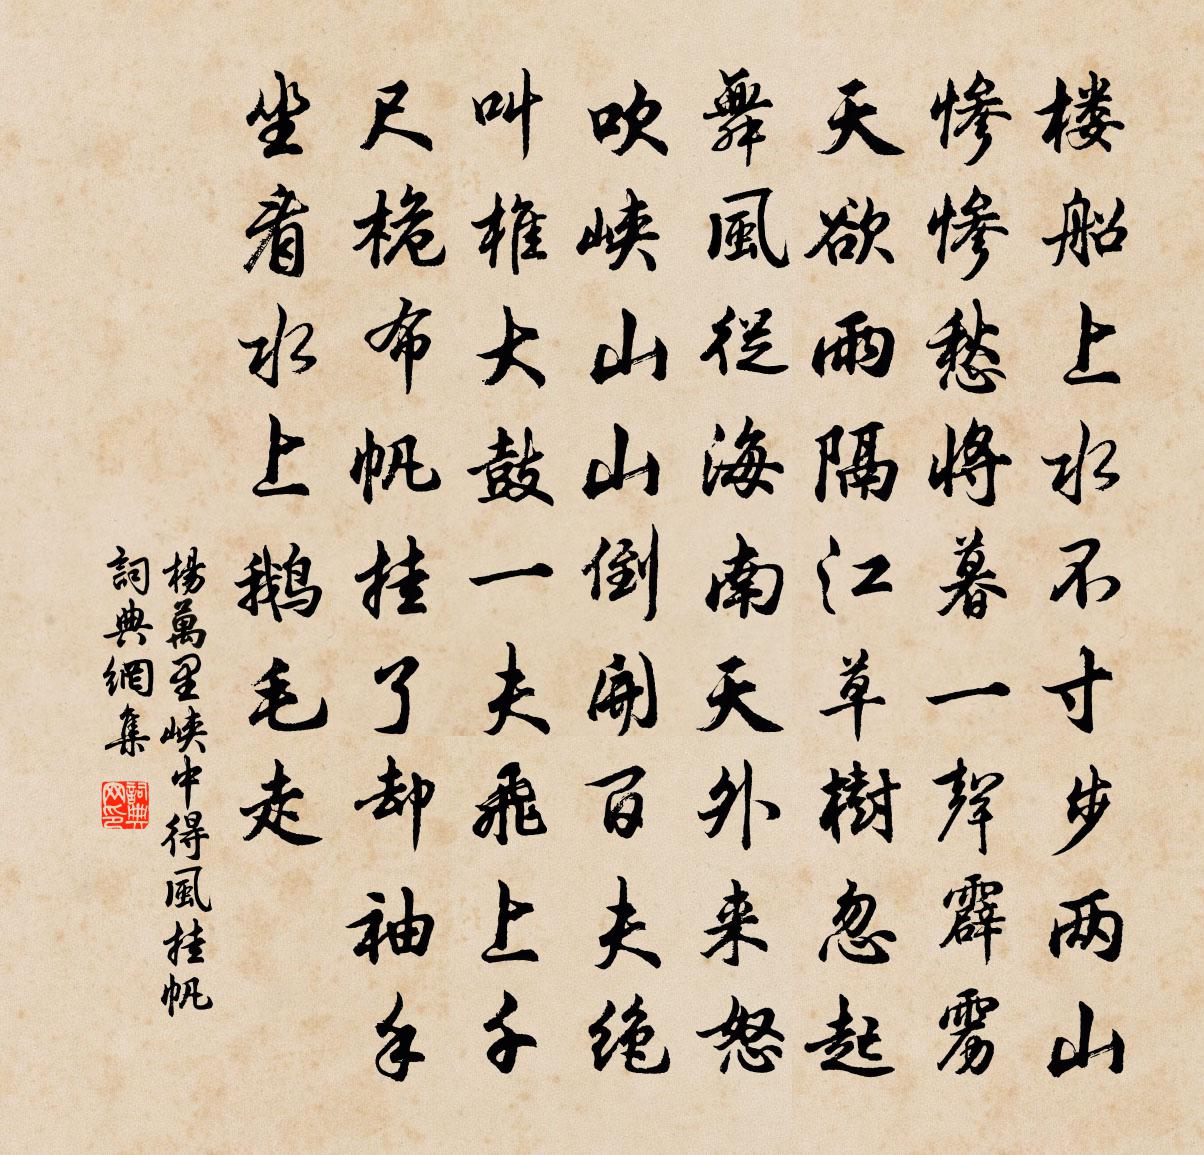 楼船上水不寸步两山
惨惨愁将暮一聲霹雳
天欲雨隔江草樹忽起
舞風從海南天外来怒
吹峡山山倒開百夫绝
叫椎大鼓一夫飛上千
尺桅布帆挂了却袖手
坐看水上鹅毛走
楊萬里峡中得風挂帆
詞典網集
詞典网印